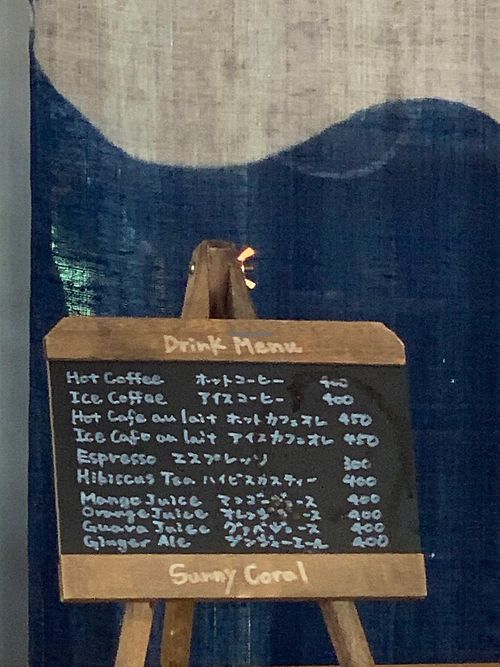 Drink Menu
Hot Coffee ホットコーヒー 400
Ice Coffee アイスコーヒー 400
Hot Cafe au lait ホットカフェオレ 450
Ice Cafe au lait アイスカフェオレ 450
Espresso エスプレッソ 300
Hibiscus Tea ハイビスカスティー 400
Mango Juice マンゴージュース 400
Orange Juice オレンジジュース 400
Guava Juice グァバジュース 400
Ginger Ale ジンジャーエール 400
Sunny Coral